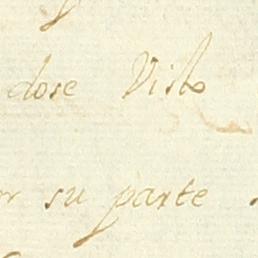 dose Visto
su parte